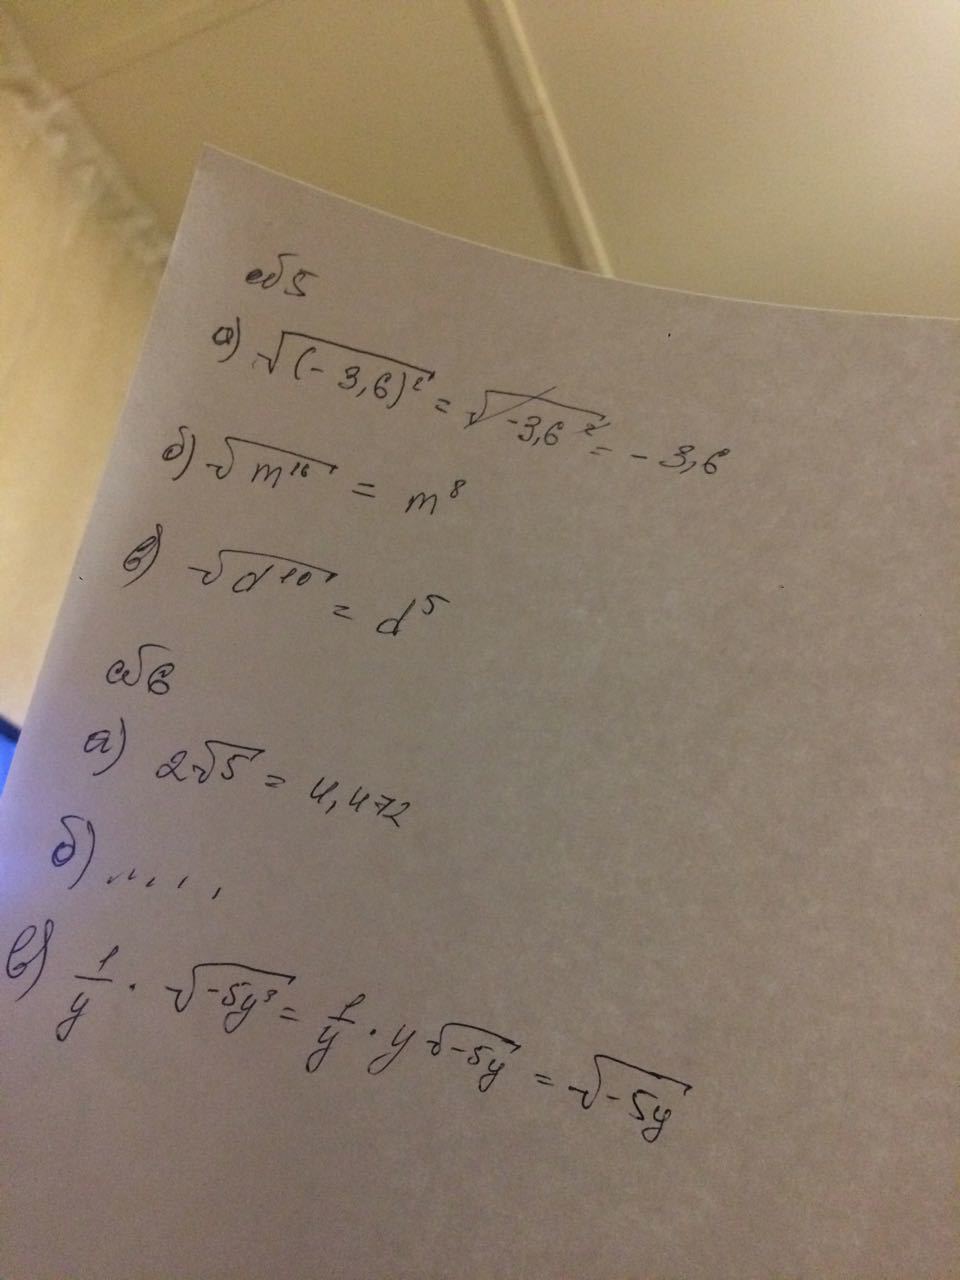 №5
а) √(-3,6)² = √-3,6² = -3,6
б) √m¹⁶ = m⁸
в) √d¹⁰ = d⁵
№6
а) 2√5 = 4,472
б) .....
в) 1/y · √-5y³ = 1/y · y√-5y = √-5y